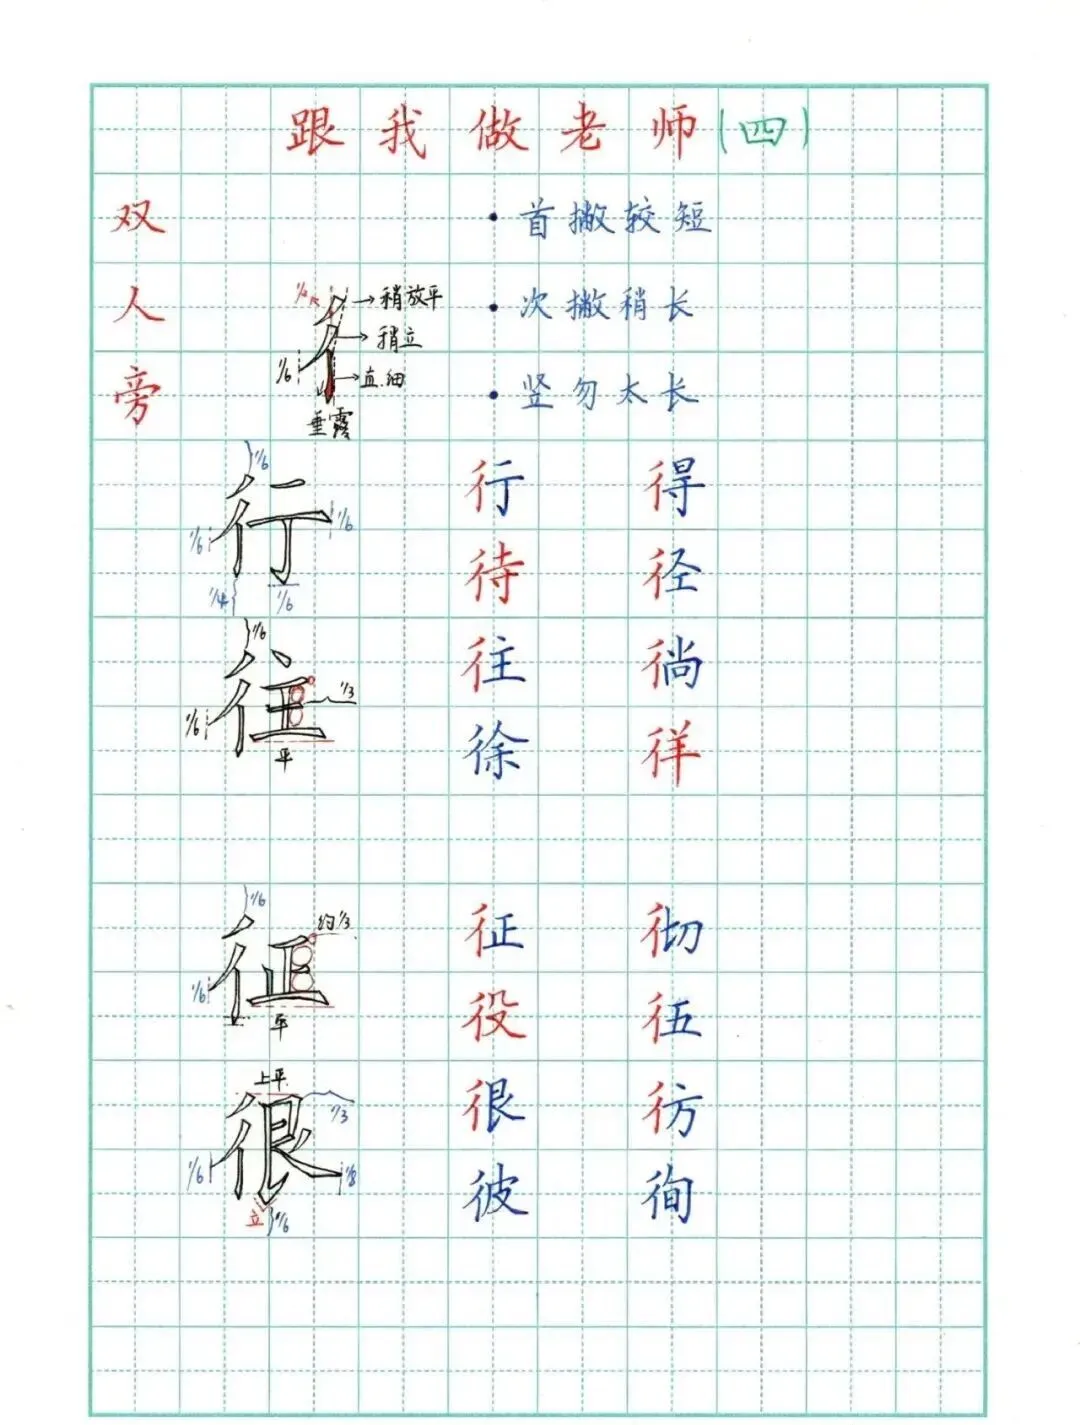 跟我做老师(四)
双人旁
1/2
稍放平
稍立
直.细
1/6
垂露
• 首撇较短
• 次撇稍长
• 竖勿太长
1/6
行
1/6
1/6
1/4
1/6
行 得
待 径
1/6
往
1/3
1/6
平
往 徜
徐 徉
1/6
征
约1/3
1/6
平
征 彻
役 伍
上平
很
1/3
1/6
1/8
立
1/6
很 彷
彼 徇